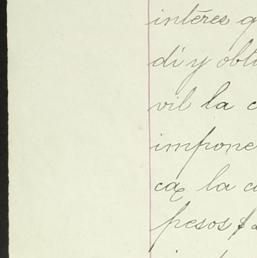 interes q
di y obtu
vil la c
impone
ca la c
pesos $